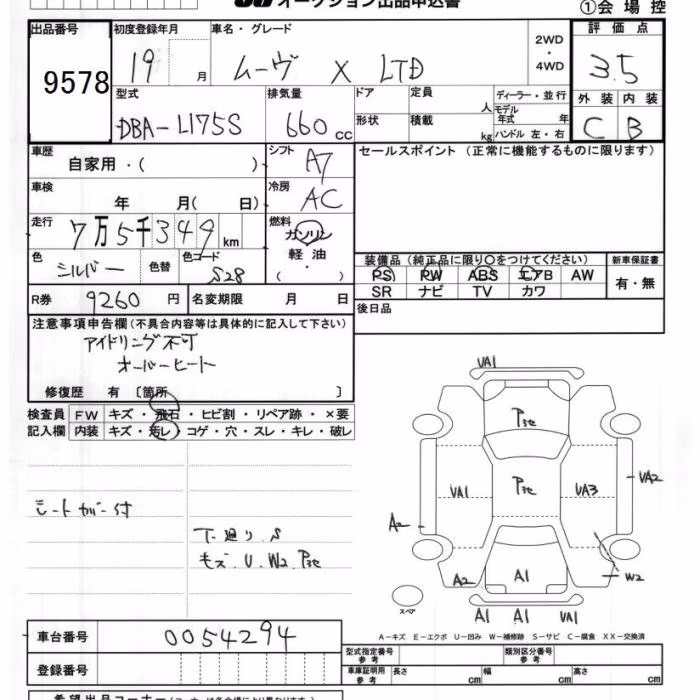 オークション出品申込書
①会場控
出品番号 9578
初度登録年月 19 月
車名・グレード ムーヴ X LTD
2WD・4WD
評価点 3.5
外装 C 内装 B
型式 DBA-L175S
排気量 660cc
ドア 形状
定員 人
積載 kg
ディーラー・並行
モデル年式 年
ハンドル 左・右
車歴 自家用・( )
シフト A7
セールスポイント (正常に機能するものに限ります)
車検 年 月( 日)
冷房 AC
走行 7万5千349km
燃料 ガソリン 軽油 ( )
色 シルバー 色替 色コード S28
装備品 (純正品に限り○をつけてください)
新車保証書
PS PW ABS エアB AW
有・無
SR ナビ TV カワ
R券 9260円 名変期限 月 日
後日品
注意事項申告欄(不具合内容等は具体的に記入して下さい)
アイドリング不可
オーバーヒート
修復歴 有 〔箇所 〕
検査員記入欄
FW キズ・飛石・ヒビ割・リペア跡・×要
内装 キズ・汚レ・コゲ・穴・スレ・キレ・破レ
シートカバー付
下廻り.S
キズ.U.W2.P3セ
UA1
P3セ
UA1
P3セ
UA3
UA2
A2
A2
A1
W2
スペア
A1 A1 UA1
A－キズ E－エクボ U－凹み W－補修跡 S－サビ C－腐食 XX－交換済
車台番号 0054294
登録番号
型式指定番号 参考
類別区分番号 参考
車庫証明用 参考 長さ cm 幅 cm 高さ cm
希望出品コーナー